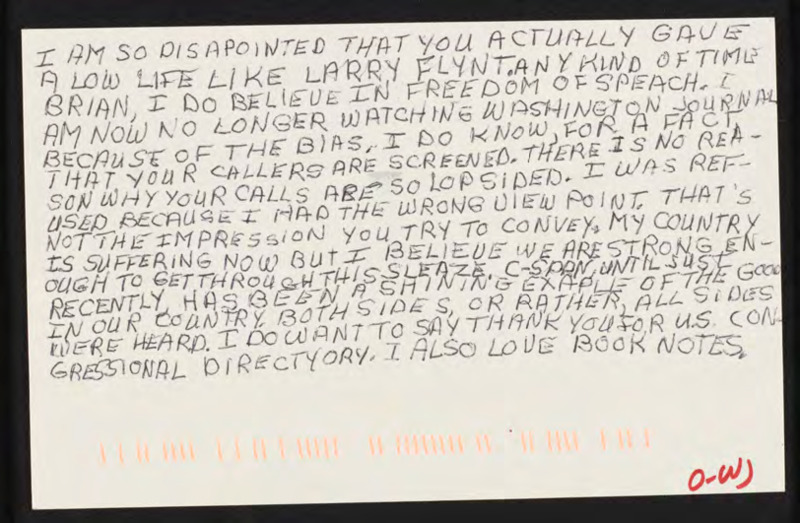 I AM SO DISAPOINTED THAT YOU ACTUALLY GAVE
A LOW LIFE LIKE LARRY FLYNT. ANY KIND OF TIME
BRIAN, I DO BELIEVE IN FREEDOM OF SPEACH. I
AM NOW NO LONGER WATCHING WASHINGTON JOURNAL
BECAUSE OF THE BIAS. I DO KNOW, FOR A FACT
THAT YOUR CALLERS ARE SCREENED. THERE IS NO REA-
SON WHY YOUR CALLS ARE SO LOPSIDED. I WAS REF-
USED BECAUSE I HAD THE WRONG VIEW POINT. THAT'S
NOT THE IMPRESSION YOU TRY TO CONVEY. MY COUNTRY
IS SUFFERING NOW BUT I BELIEVE WE ARE STRONG EN-
OUGH TO GET THROUGH THIS SLEAZE. C-SPAN, UNTIL JUST
RECENTLY, HAS BEEN A SHINING EXAPLE OF THE GOOD
IN OUR COUNTRY. BOTH SIDES, OR RATHER, ALL SIDES
WERE HEARD. I DO WANT TO SAY THANK YOU FOR U.S. CON-
GRESSIONAL DIRECTYORY. I ALSO LOVE BOOK NOTES.
O-WJ